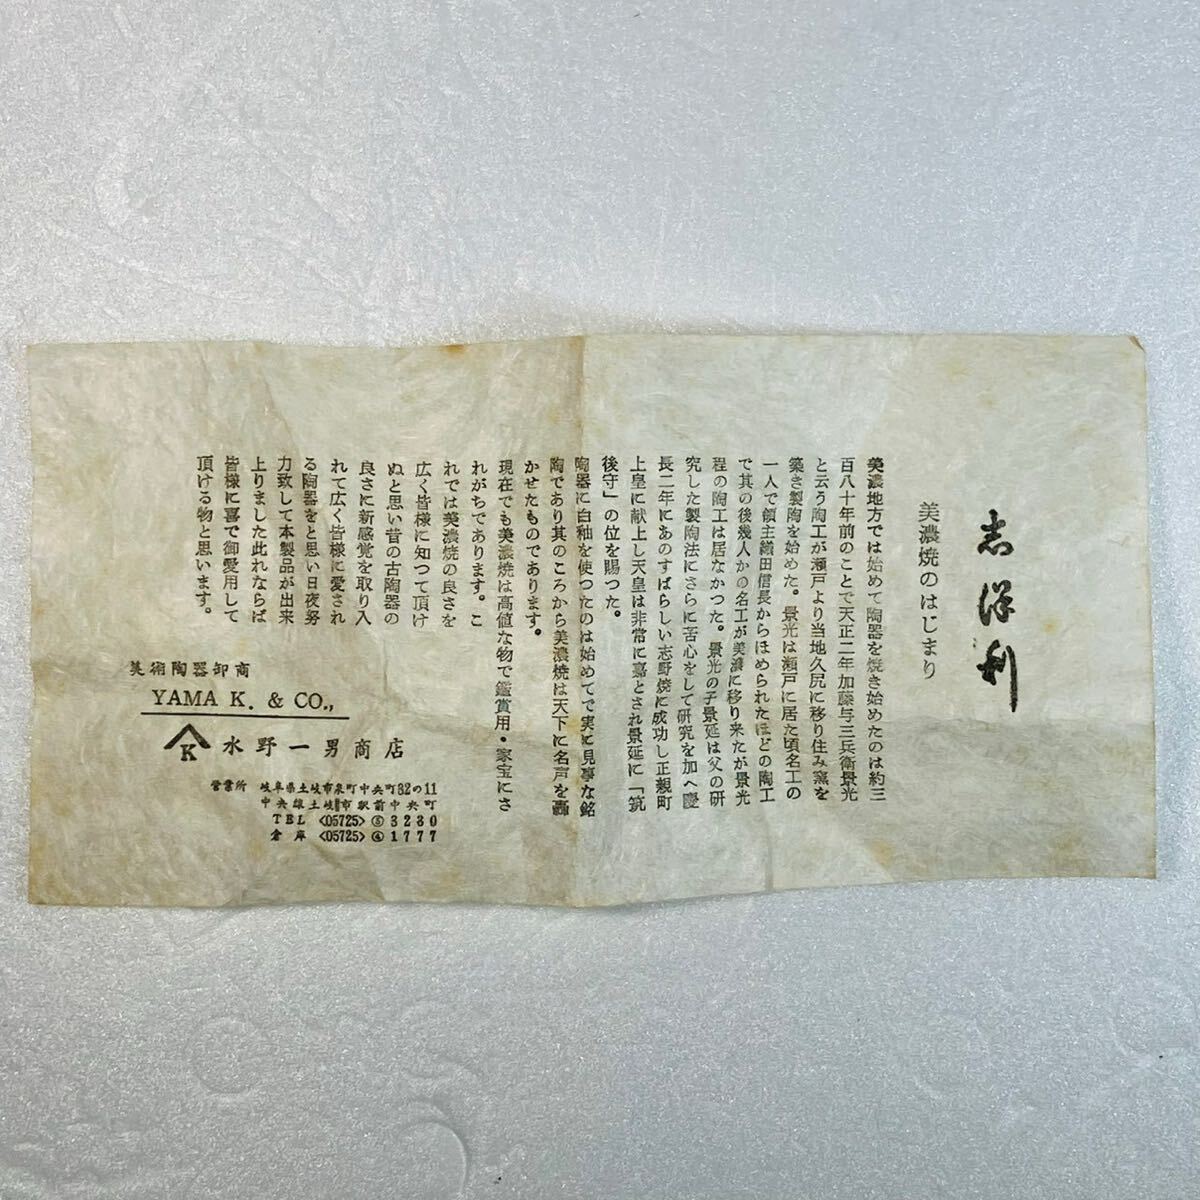 志洋利
美濃焼のはじまり
美濃地方では始めて陶器を焼き始めたのは約三
百八十年前のことで天正二年加藤与三兵衛景光
と云う陶工が瀬戸より当地久尻に移り住み窯を
築き製陶を始めた。景光は瀬戸に居た頃名工の
一人で領主織田信長からほめられたほどの陶工
で其の後幾人かの名工が美濃に移り来たが景光
程の陶工は居なかつた。景光の子景延は父の研
究した製陶法にさらに苦心をして研究を加へ慶
長二年にあのすばらしい志野焼に成功し正親町
上皇に献上し天皇は非常に嘉とされ景延に「筑
後守」の位を賜つた。
陶器に白釉を使つたのは始めてで実に見事な銘
陶であり其のころから美濃焼は天下に名声を轟
かせたものであります。
現在でも美濃焼は高値な物で鑑賞用・家宝にさ
れがちであります。こ
れでは美濃焼の良さを
広く皆様に知つて頂け
ぬと思い昔の古陶器の
良さに新感覚を取り入
れて広く皆様に愛され
る陶器をと思い日夜努
力致して本製品が出来
上りました此れならば
皆様に喜で御愛用して
頂ける物と思います。
美術陶器卸商
YAMA K. & CO.,
K 水野一男商店
営業所 岐阜県土岐市泉町中央町32の11
中央線土岐市駅前中央町
TEL <05725> ⑤ 3230
倉庫 <05725> ④ 1777